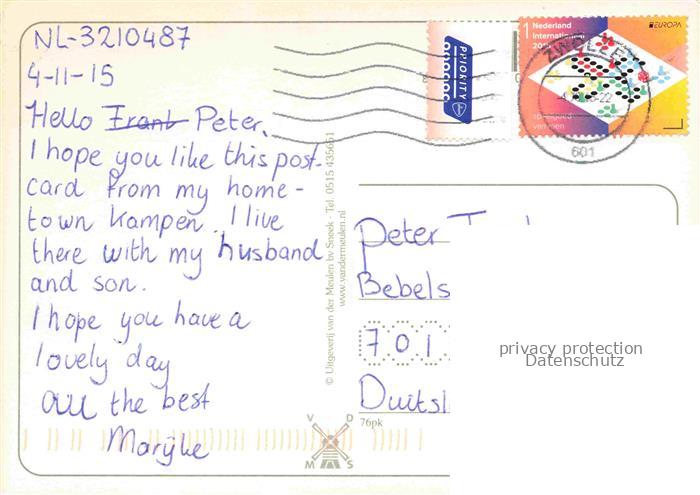 NL-3210487
4-11-15
Hello Frank Peter,
I hope you like this post-
card from my home-
town Kampen. I live
there with my husband
and son.
I hope you have a
lovely day
All the best
Marijke
© Uitgeverij van der Meulen bv Sneek - Tel. 0515 435661
www.vandermeulen.nl
PRIORITY
1 Nederland
Internationaal
EUROPA
ZWOLLE
601
Peter
Bebels
701
Duitsl
76pk
V D
M S
privacy protection
Datenschutz